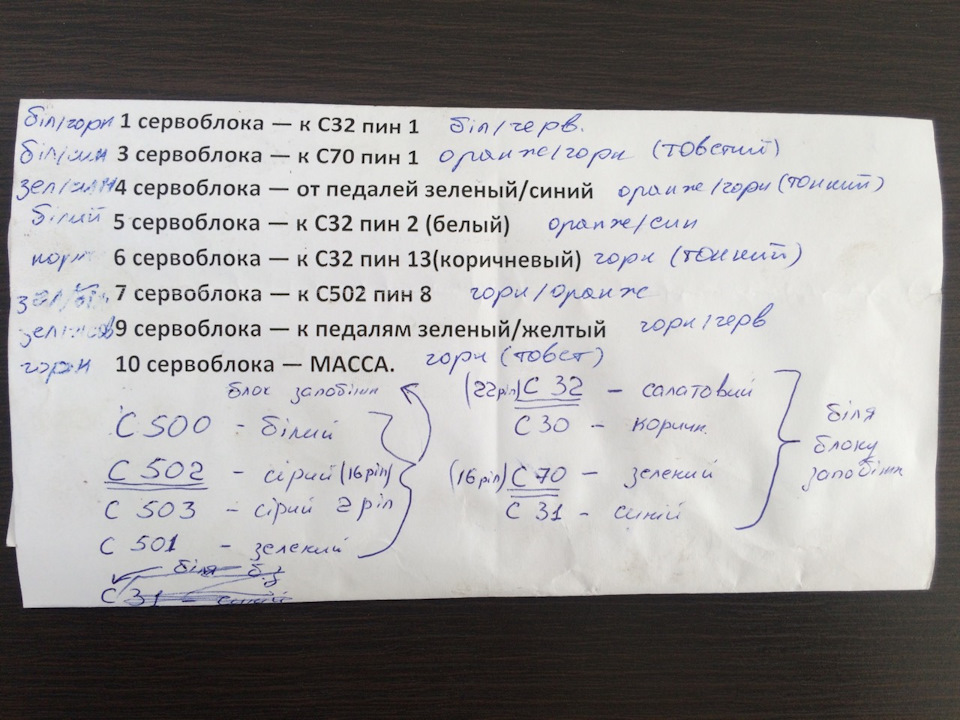 біл/горн 1 сервоблока — к С32 пин 1 біл/черв.
біл/син 3 сервоблока — к С70 пин 1 оранж/горн (товстий)
зел/син 4 сервоблока — от педалей зеленый/синий оранж/горн (тонкий)
білий 5 сервоблока — к С32 пин 2 (белый) оранж/син
корич 6 сервоблока — к С32 пин 13(коричневый) горн (тонкий)
зел/біл 7 сервоблока — к С502 пин 8 горн/оранж
9 сервоблока — к педалям зеленый/желтый горн/черв
горн 10 сервоблока — МАССА. горн (товст)
блок запобіжн
С 500 - білий
С 502 - сірий (16 pin)
С 503 - сірий 2 pin
С 501 - зелений
С 31 - синій
(22 pin) С 32 - салатовий
С 30 - коричн.
(16 pin) С 70 - зелений
С 31 - синій
біля
блоку
запобіжн